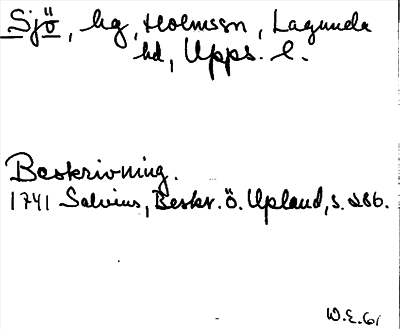 Sjö, hg, Holmssn, Lagunda
hd, Upps. l.
Beskrivning.
1741 Salvius, Beskr. ö. Upland, s. 286.
W.E. 61